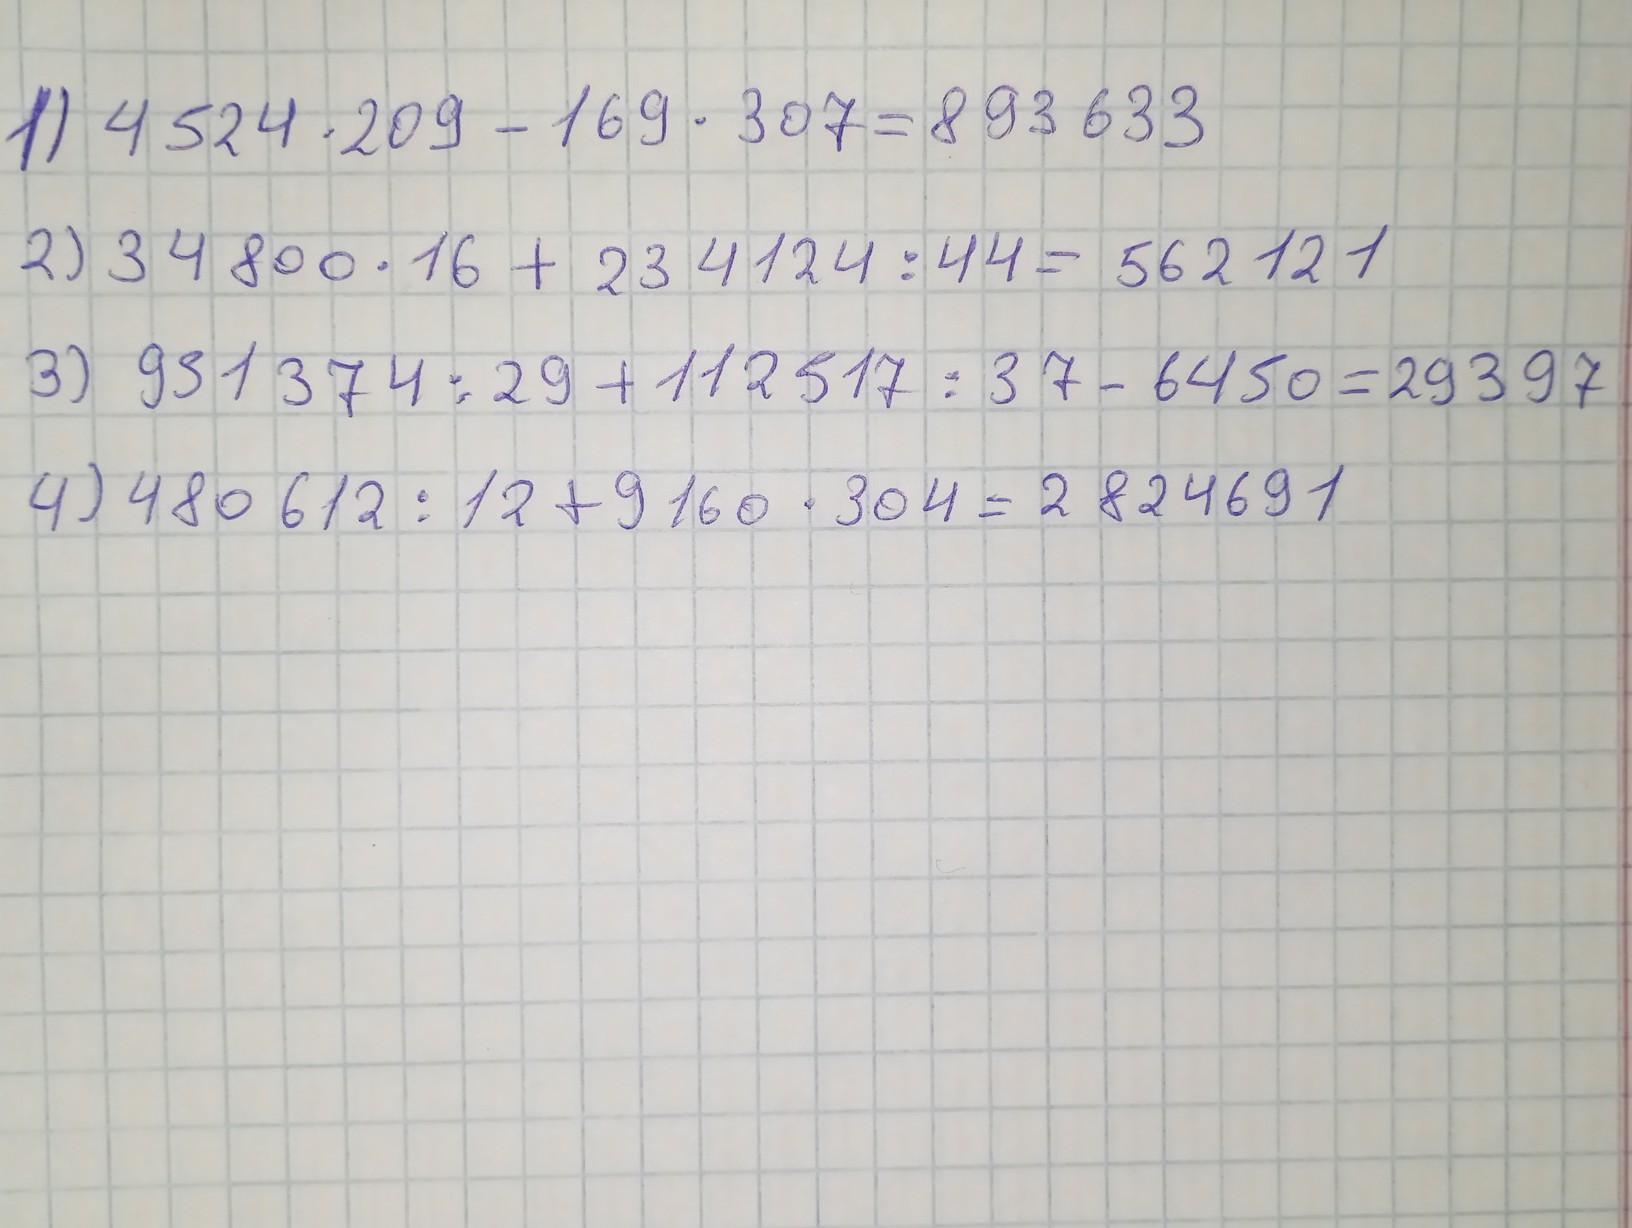 1) 4524·209-169·307=893633
2) 34800·16+234124:44=562121
3) 951374:29+112517:37-6450=29397
4) 480612:12+9160·304=2824691